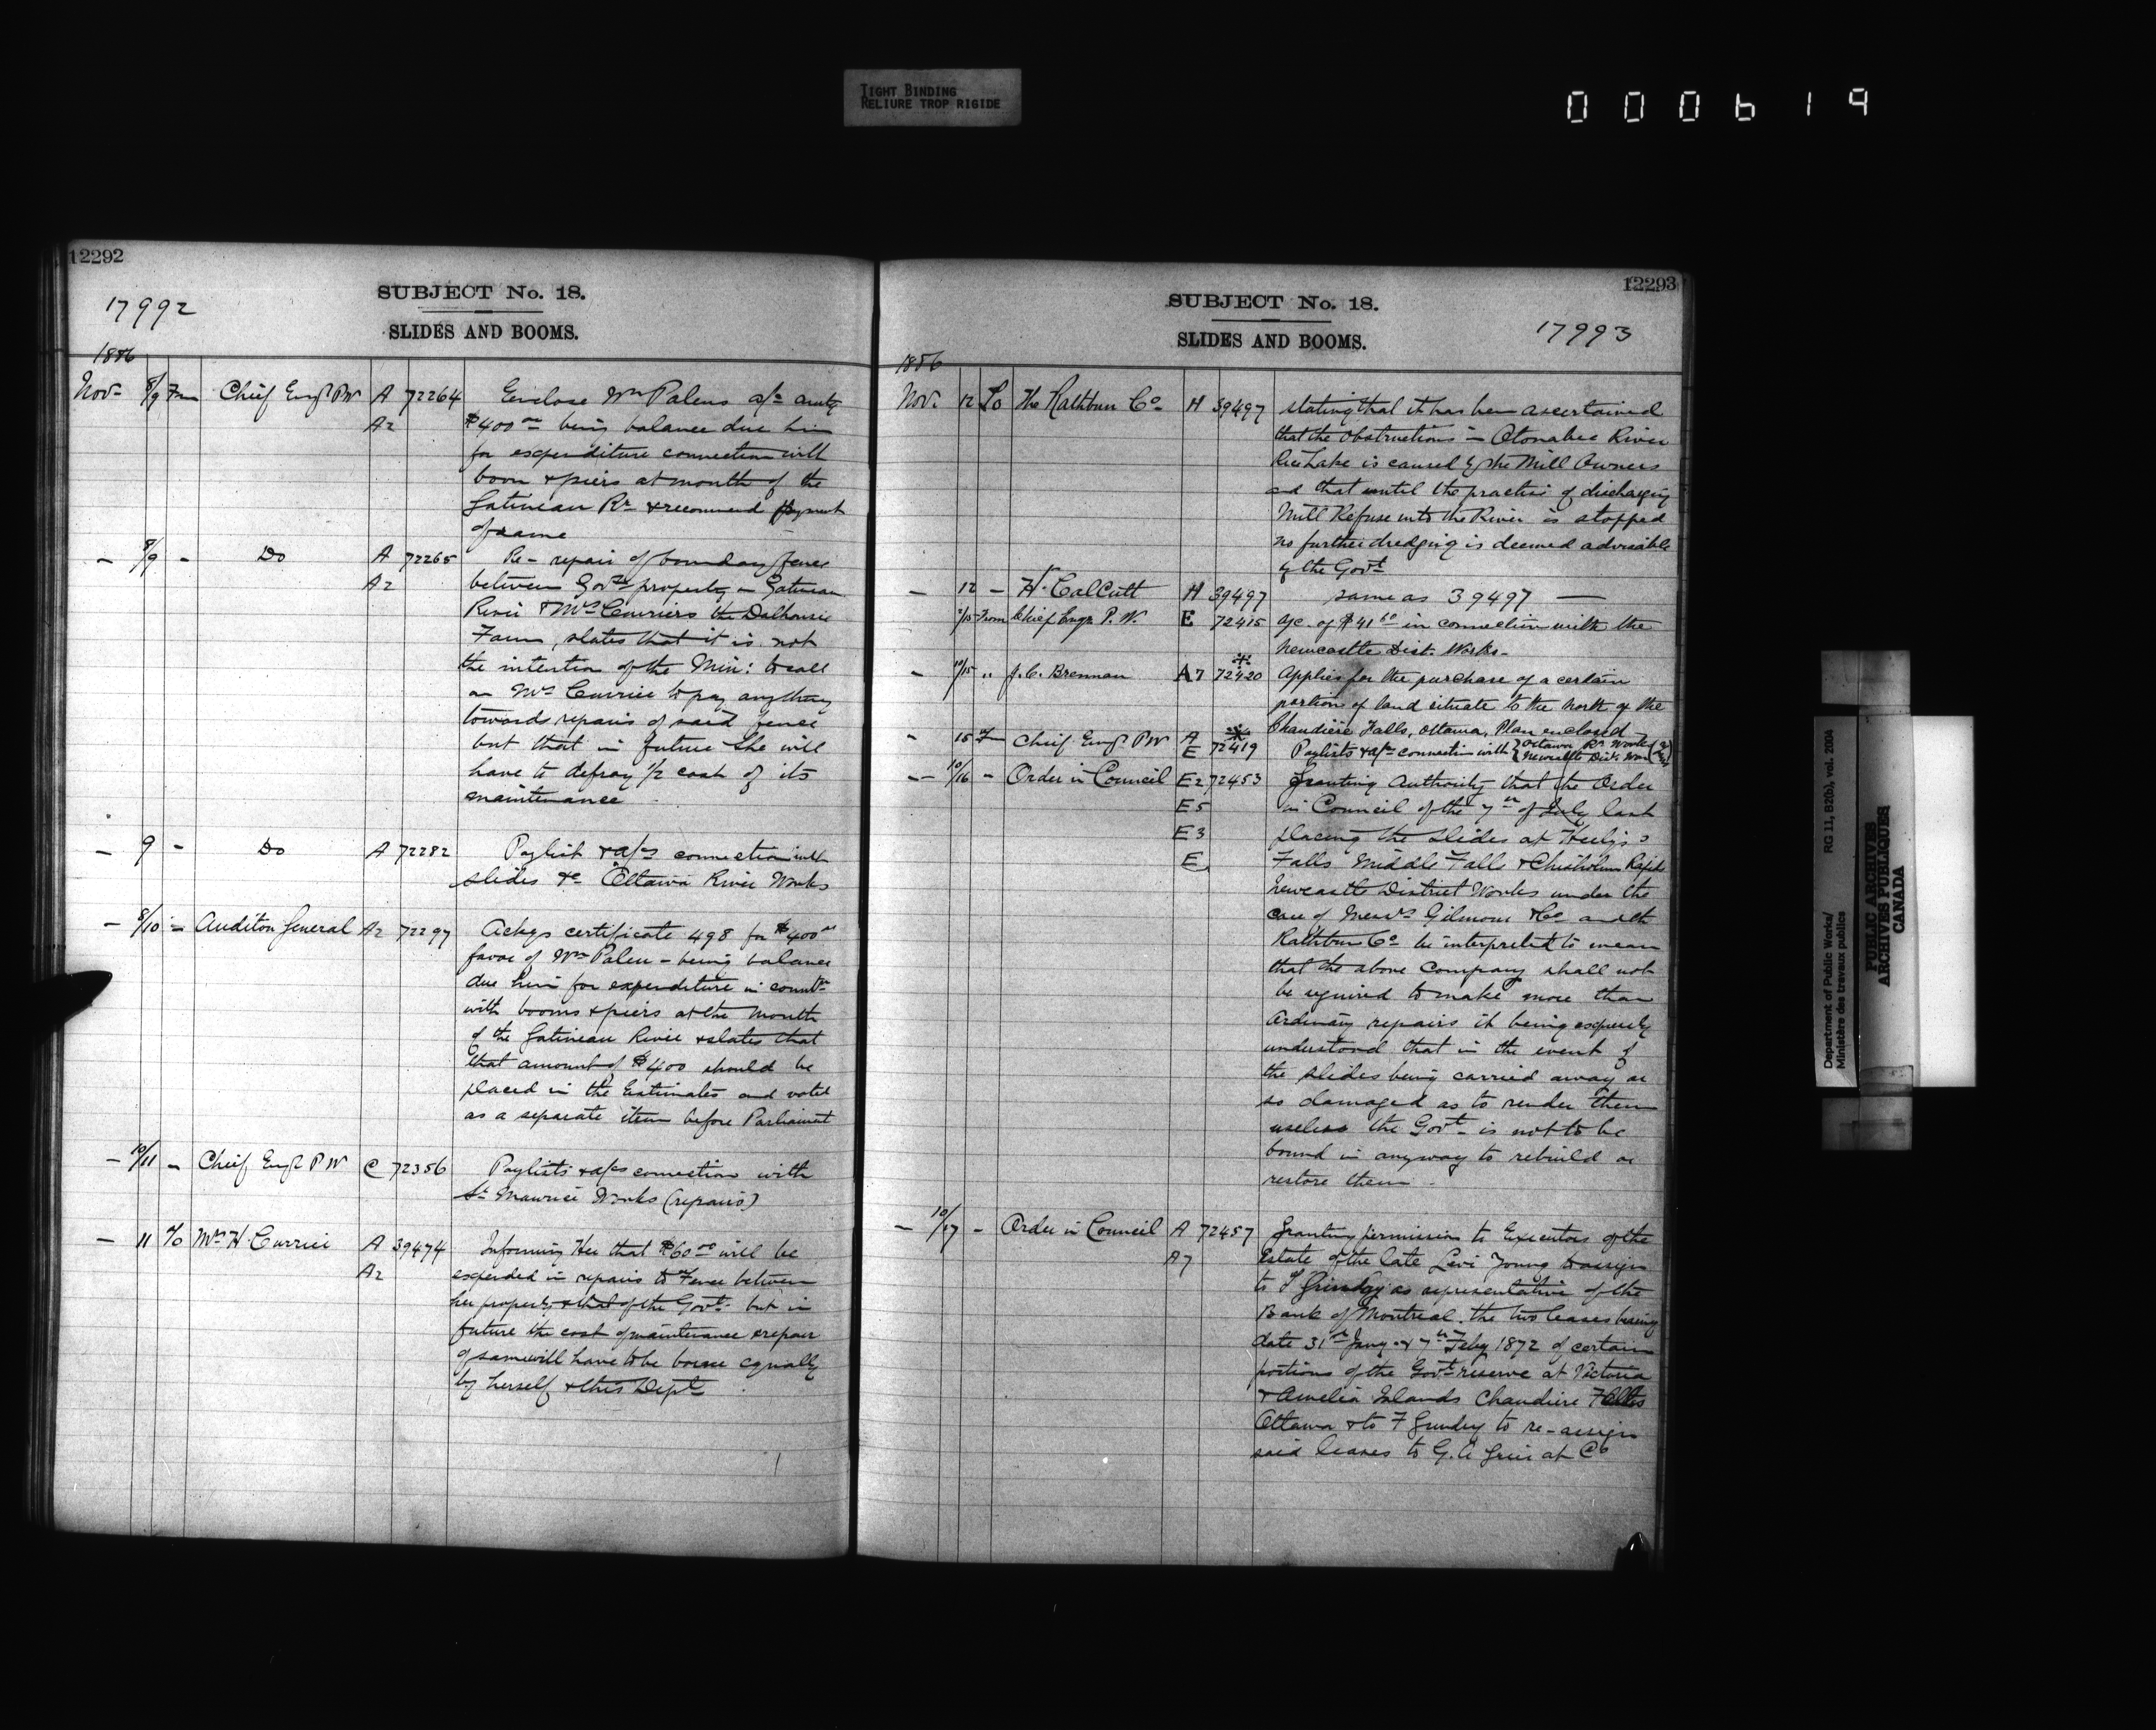 TIGHT BINDING
RELIURE TROP RIGIDE
000619
12292
SUBJECT No. 18.
17992
SLIDES AND BOOMS.
1886
Nov- 8/9 From Chief Engr PW A 72264 Enclose Wm Palens a/c amtg
A2 $400 00 being balance due him
for expenditure connection with
boom & piers at mouth of the
Gatineau Rr & recommend payment
of same
- 8/9 - Do A 72265 Re- repair of boundary fence
A2 between Govt property on Gatineau
River & Mrs Curriers the Dalhousie
Farm, states that it is not
the intention of the Min: to call
on Mrs Currier to pay anything
towards repairs of said fence
but that in future she will
have to defray 1/2 cost of its
maintenance
- 9 - Do A 72282 Paylist & a/cs connection with
slides &c Ottawa River Works
- 8/10 - Auditor General A2 72297 Ackgs certificate 498 for $400 00
favor of Wm Palen - being balance
due him for expenditure in connctn
with booms & piers at the mouth
of the Gatineau River & states that
that amount of $400 should be
placed in the Estimates and voted
as a separate item before Parliament
- 10/11 - Chief Engr P W C 72356 Paylists & a/cs connection with
St Maurice Works (repairs)
- 11 To Mrs H. Currier A 39474 Informing Her that $60 00 will be
A2 expended in repairs to Fence between
her property & that of the Govt- but in
future the cost of maintenance & repair
of same will have to be borne equally
by herself & this Dept
12293
SUBJECT No. 18.
17993
SLIDES AND BOOMS.
1886
Nov. 12 To The Rathbun Co- H 39497 stating that it has been ascertained
that the obstructions in Otonabee River
Rice Lake is caused by the Mill Owners
and that until the practice of discharging
Mill Refuse into the River is stopped
no further dredging is deemed advisable
by the Govt
- 12 - H. Calcutt H 39497 same as 39497
/15 From Chief Engr P. W. E 72415 a/c. of $41 60 in connection with the
Newcastle Dist. Works-
- 10/15 " J. C. Brennan A7 72420 Applies for the purchase of a certain
portion of land situate to the North of the
Chaudière Falls, Ottawa, Plan enclosed
- 15 From Chief Engr PW A E 72419 Paylists & a/cs connection with { Ottawa Rr Works
Newcastle Dist. Works
- 10/16 - Order in Council E2 72453 Granting Authority that the Order
E5 in Council of the 7th of July last
E3 placing the slides at Heelys
E Falls Middle Falls & Chisholms Rapids
Newcastle District Works under the
care of Messrs Gilmour & Co and the
Rathbun Co be interpreted to mean
that the above Company shall not
be required to make more than
ordinary repairs it being expressly
understood that in the event of
the slides being carried away or
so damaged as to render them
useless the Govt- is not to be
bound in anyway to rebuild or
restore them
- 10/17 - Order in Council A 72457 Granting permission to Executors of the
A7 Estate of the late Levi Young to assign
to F Grundy as representative of the
Bank of Montreal. the two leases bearing
date 31st Jany & 7th Feby 1872 of certain
portions of the Govt reserve at Victoria
& Amelia Islands Chaudiere Falls
Ottawa & to F Grundy to re-assign
said leases to G. A Grier & Co
Department of Public Works/
Ministère des travaux publics
RG 11, B2(b), vol. 2004
PUBLIC ARCHIVES
ARCHIVES PUBLIQUES
CANADA